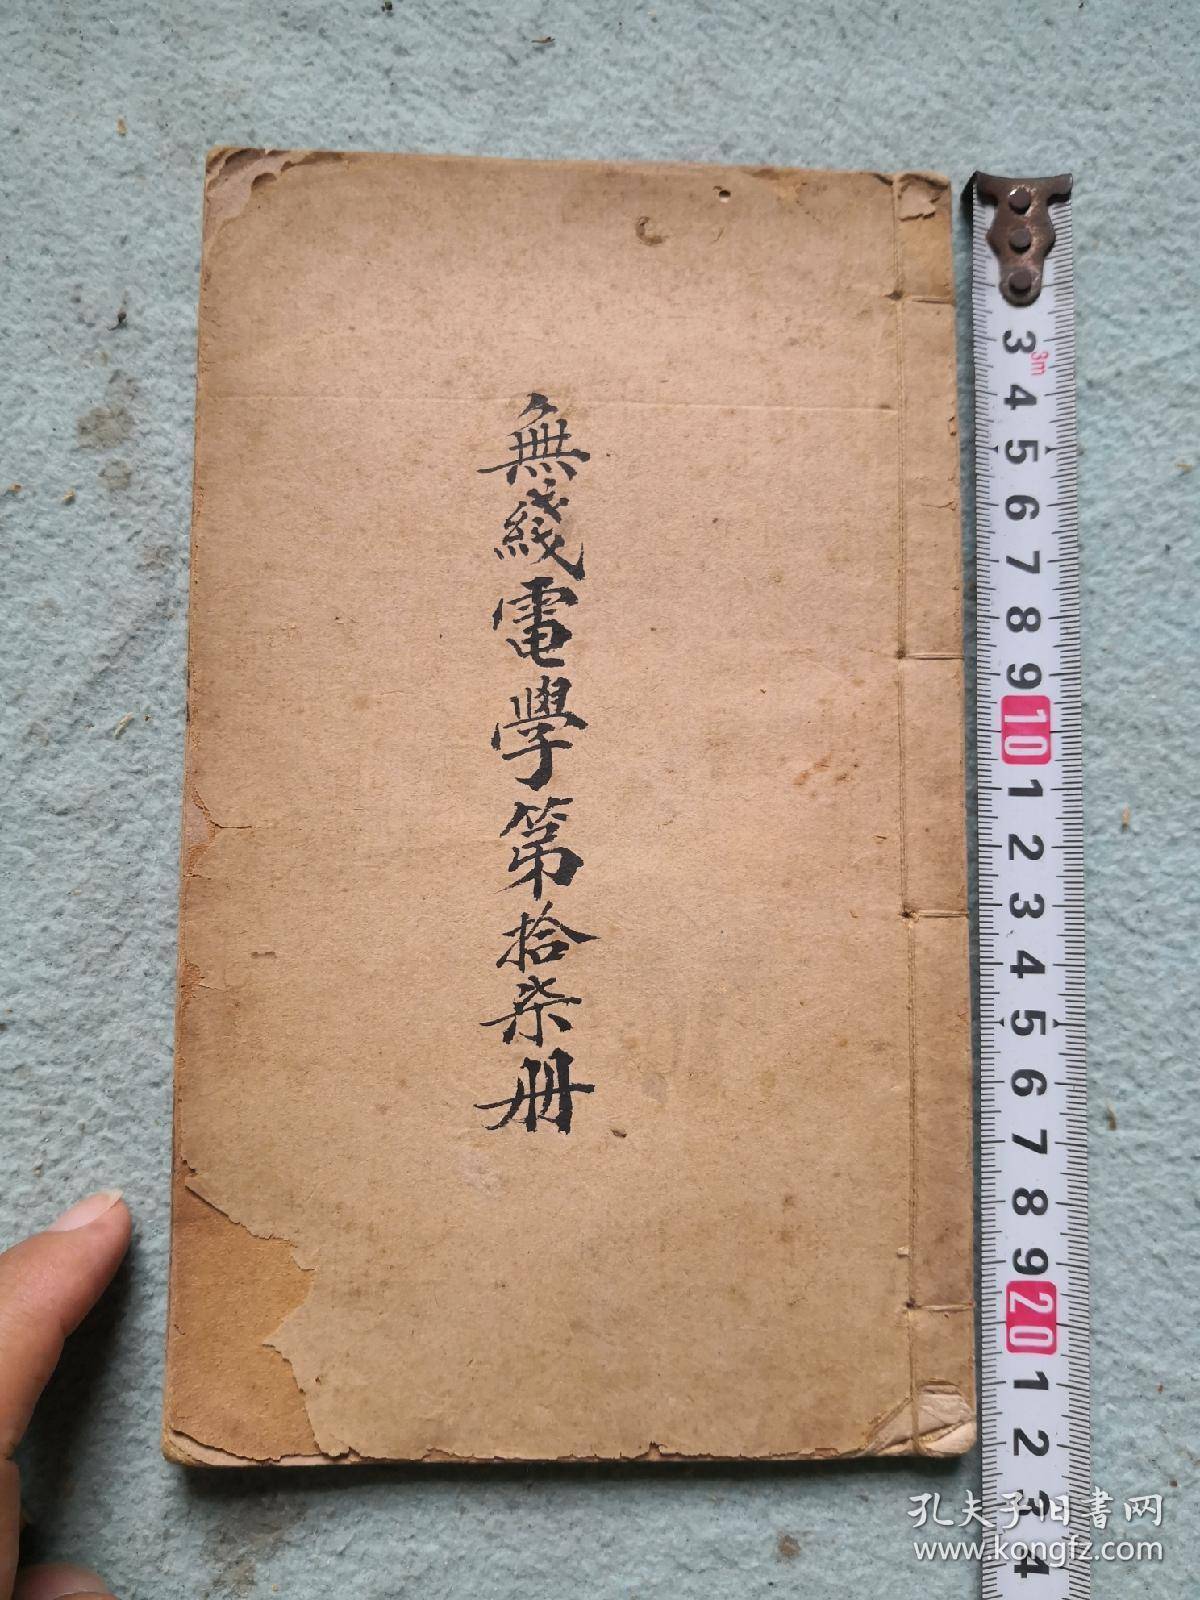 無綫電學第拾柒册
3 3m
4
5
6
7
8
9
10
1
2
3
4
5
6
7
8
9
20
1
2
3
4
孔夫子旧書网
www.kongfz.com